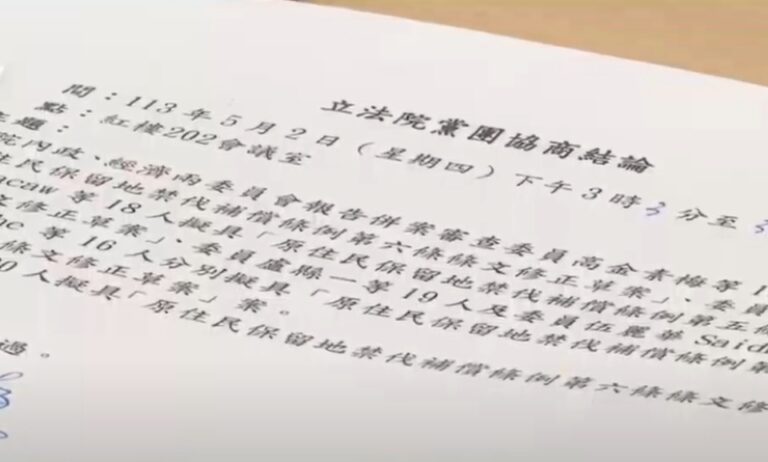 立法院黨團協商結論
間：113年5月2日（星期四）下午3時 分至
點：紅樓202會議室
題：
院內政、經濟兩委員會報告併案審查委員高金素梅等1
住民保留地禁伐補償條例第六條條文修正草案」、委員
acaw 等18人擬具「原住民保留地禁伐補償條例第五條
文修正草案」、委員盧縣一等19人及委員伍麗華Saidh
等16人分別擬具「原住民保留地禁伐補償條例第
條文修正草案」案。
0人擬具「原住民保留地禁伐補償條例第六條條文修
過。